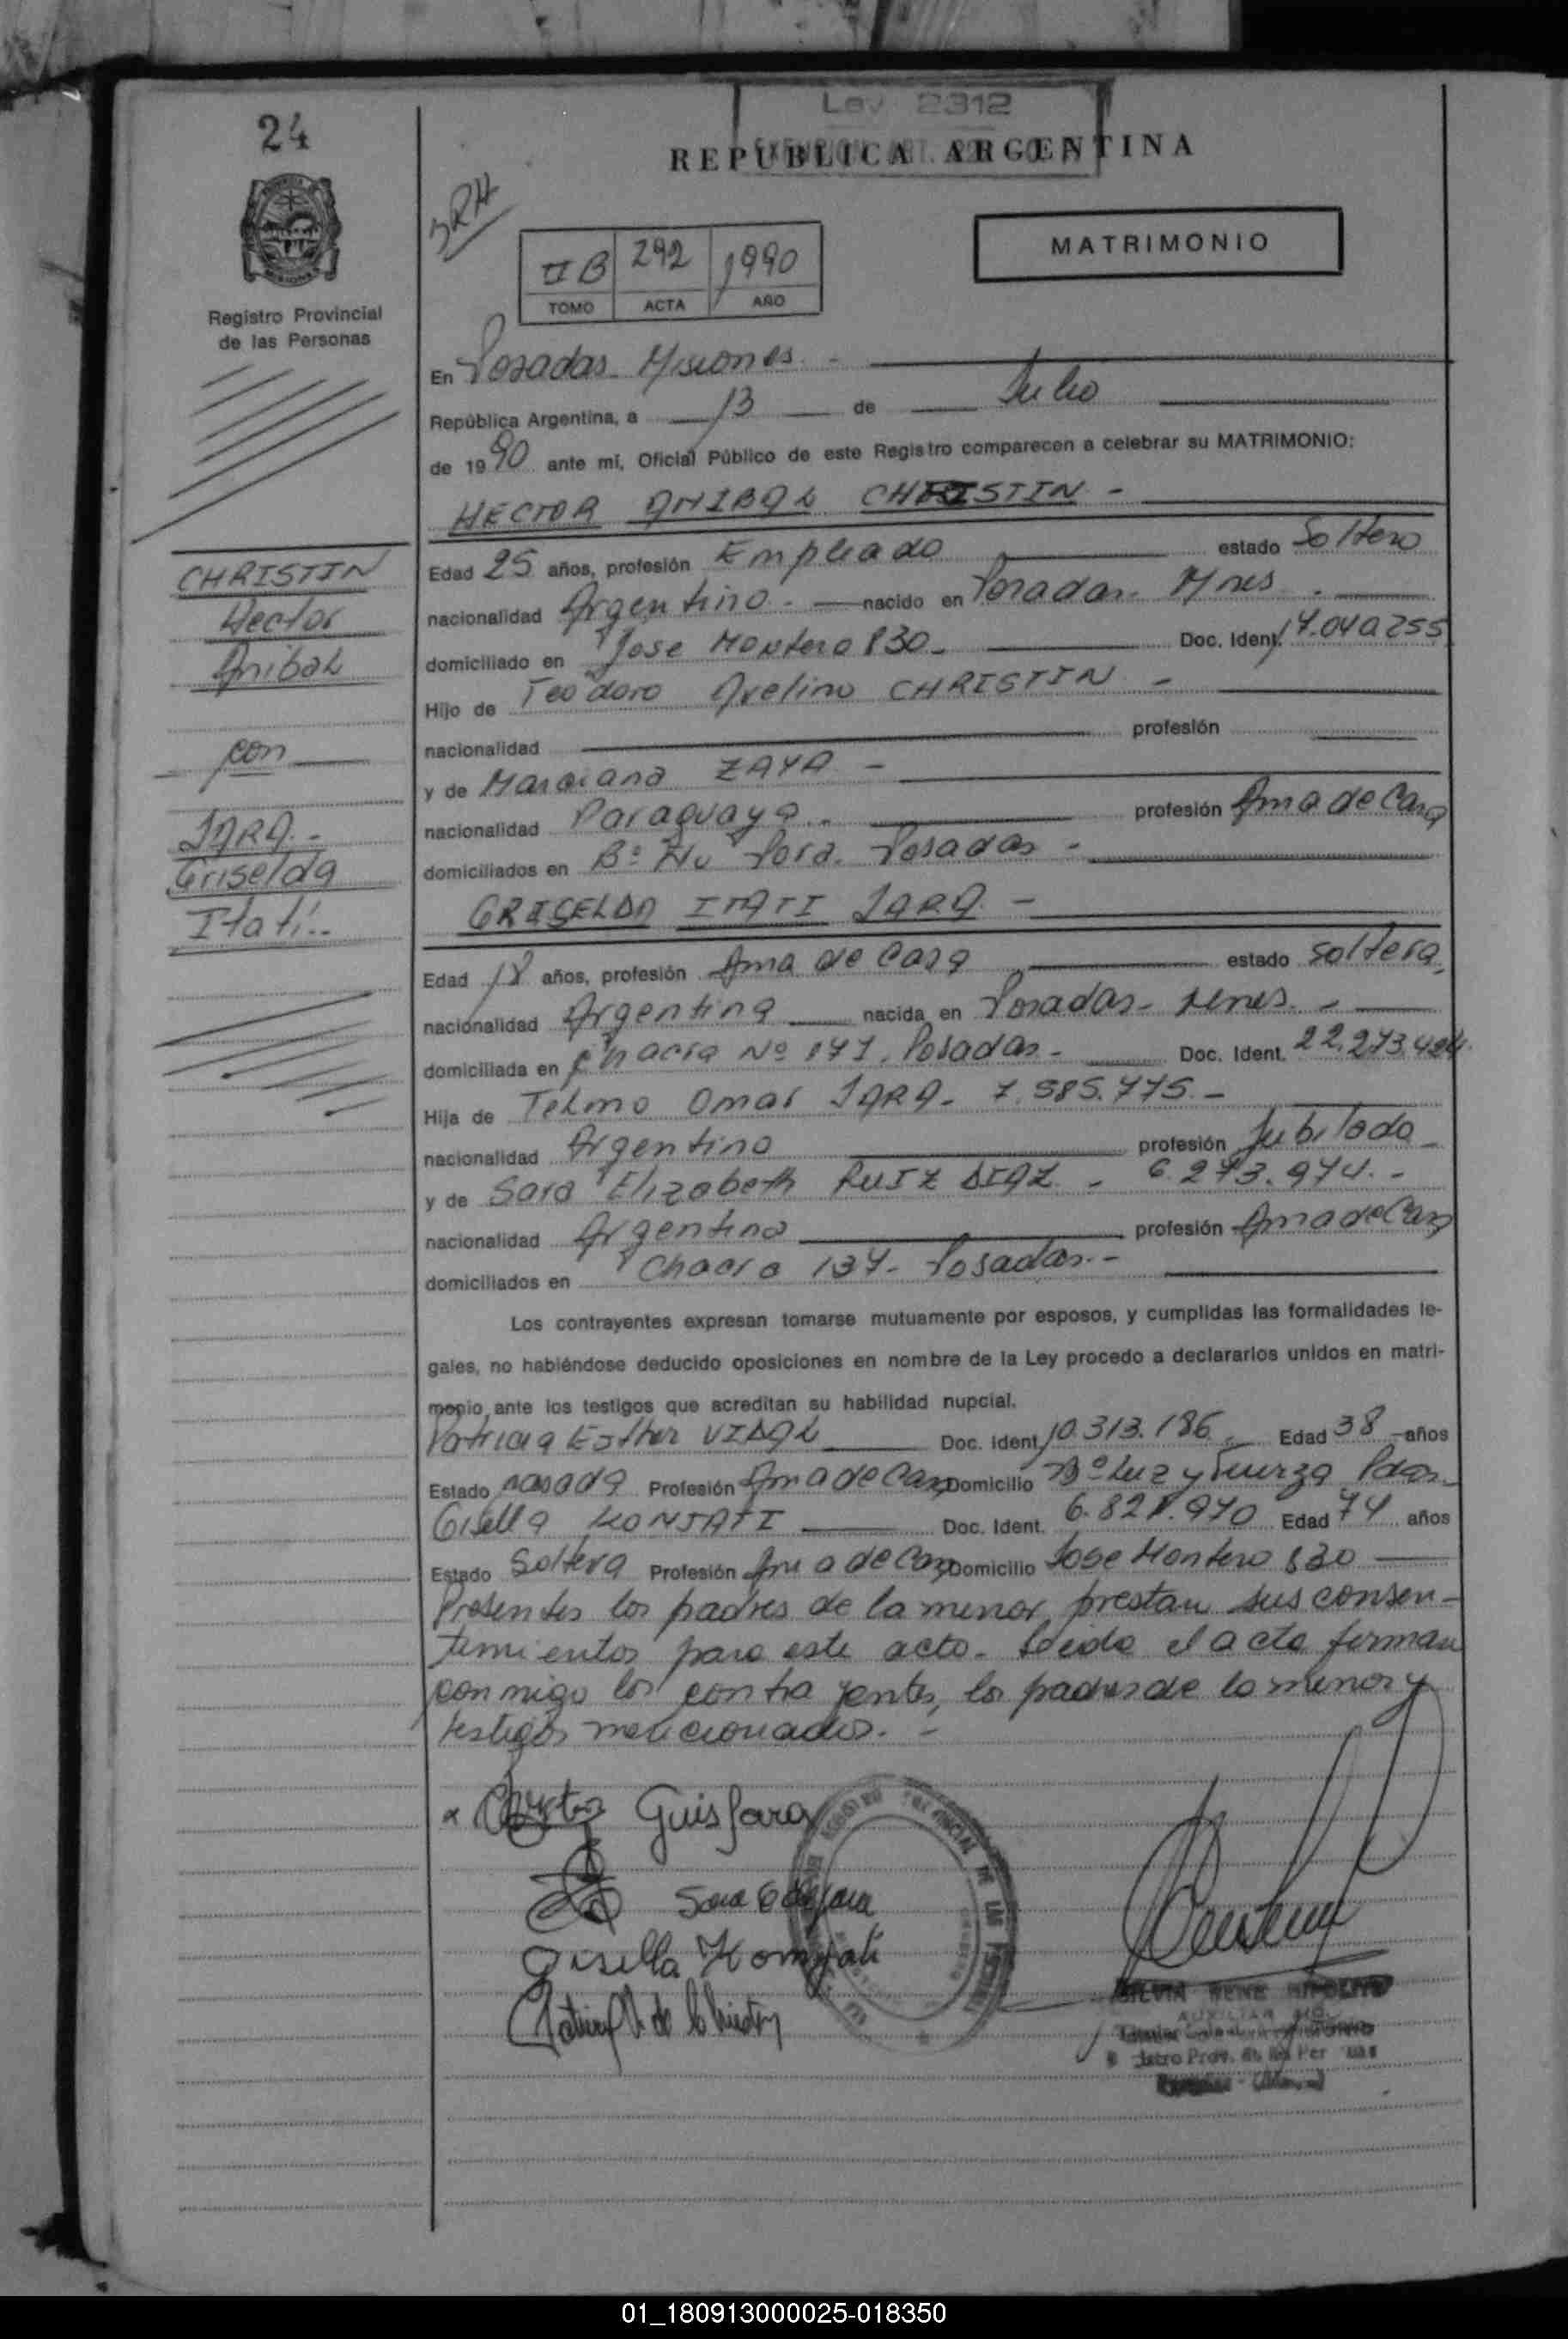 24
Ley 2312
REPUBLICA ARGENTINA
MATRIMONIO
II B 292 1990
TOMO ACTA AÑO
Registro Provincial
de las Personas
En Posadas Misiones -
República Argentina, a 13 de Julio
de 1990 ante mí, Oficial Público de este Registro comparecen a celebrar su MATRIMONIO:
HECTOR ANIBAL CHRISTIN -
Edad 25 años, profesión Empleado estado Soltero
nacionalidad Argentino - nacido en Posadas - Mnes -
domiciliado en Jose Montero 830 - Doc. Ident. 17.040255
Hijo de Teodoro Avelino CHRISTIN -
nacionalidad profesión
y de Marciana ZAYA -
nacionalidad Paraguaya - profesión Ama de Casa
domiciliados en Bº Posadas -
GRISELDA ITATI JARA -
Edad 18 años, profesión Ama de Casa estado soltera
nacionalidad Argentina nacida en Posadas - -
domiciliada en Chacra Nº 141, Posadas - Doc. Ident. 22.273.484
Hija de Telmo Omar JARA - 7.585.775 -
nacionalidad Argentino profesión Jubilado
y de Sara Elizabeth RUIZ DIAZ - 6.273.974 -
nacionalidad Argentina profesión Ama de Casa
domiciliados en Chacra 137 - Posadas -
CHRISTIN
Hector
Anibal
con
JARA -
Griselda
Itatí
Los contrayentes expresan tomarse mutuamente por esposos, y cumplidas las formalidades le-
gales, no habiéndose deducido oposiciones en nombre de la Ley procedo a declararlos unidos en matri-
monio ante los testigos que acreditan su habilidad nupcial.
Patricia Esther VIDAL Doc. Ident. 10.313.186 Edad 38 años
Estado casada Profesión Ama de Casa Domicilio Bº Luz y Fuerza Pdas.
Gisella KOMJATI Doc. Ident. 6.821.970 Edad 74 años
Estado Soltera Profesión Ama de Casa Domicilio Jose Montero 830
Presentes los padres de la menor, prestan sus consen-
timientos para este acto. Leida el acta firman
conmigo los contrayentes, los padres de la menor y
testigos mencionados. -
Guisjara
Sara
Gisella Komjati
SILVIA RENE HIPOLITO
01_180913000025-018350